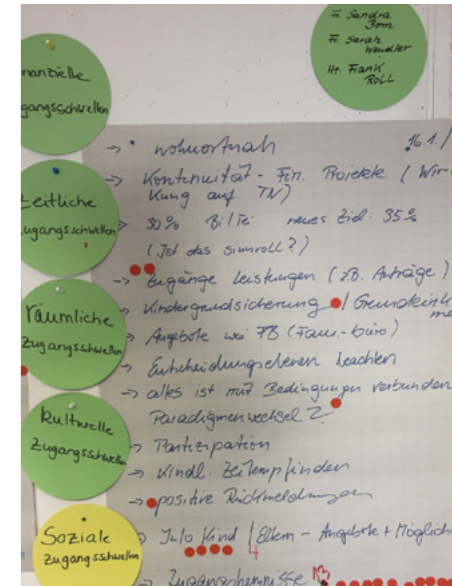 Fr. Sandra
Born
Fr. Sarah
Wendler
Hr. Frank
Roll
nanzielle
gangsschwellen
Zeitliche
ugangsschwellen
räumliche
Zugangsschwellen
Kulturelle
Zugangsschwellen
Soziale
Zugangsschwellen
-> wohnortnah 16.1./
-> Kontinuität - Fin. Projekte (Wir-
kung auf TN)
30% neues Ziel: 35%
(Ist das sinnvoll?)
-> Zugänge Leistungen (z.B. Anträge)
-> Kindergrundsicherung / Grundeink
-> Angebote wie FB (Fam.-büro)
-> Entscheidungsebenen beachten
-> alles ist mit Bedingungen verbunden
Paradigmenwechsel?
-> Partizipation
-> Kindl. Zeitempfinden
-> positive Rückmeldungen
-> Info Kind / Eltern - Angebote + Möglich
4
-> Zugangshemnisse 13